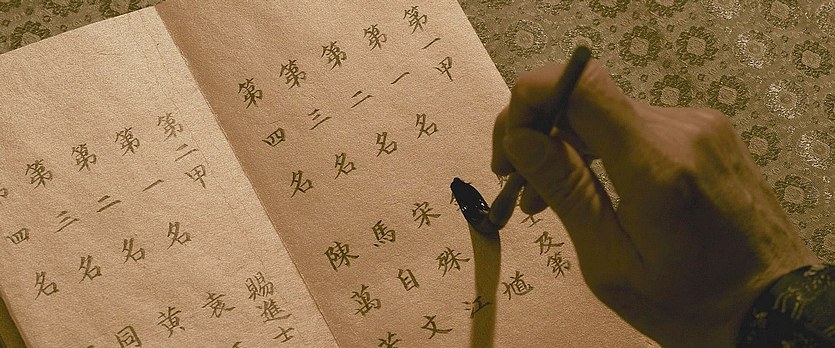 第一甲 士及第
第一名 馗
第二名 宋殊江
第三名 馬自文
第四名 陳萬
第二甲 賜進士
第一名 袁
第二名 黃
第三名 同
四名